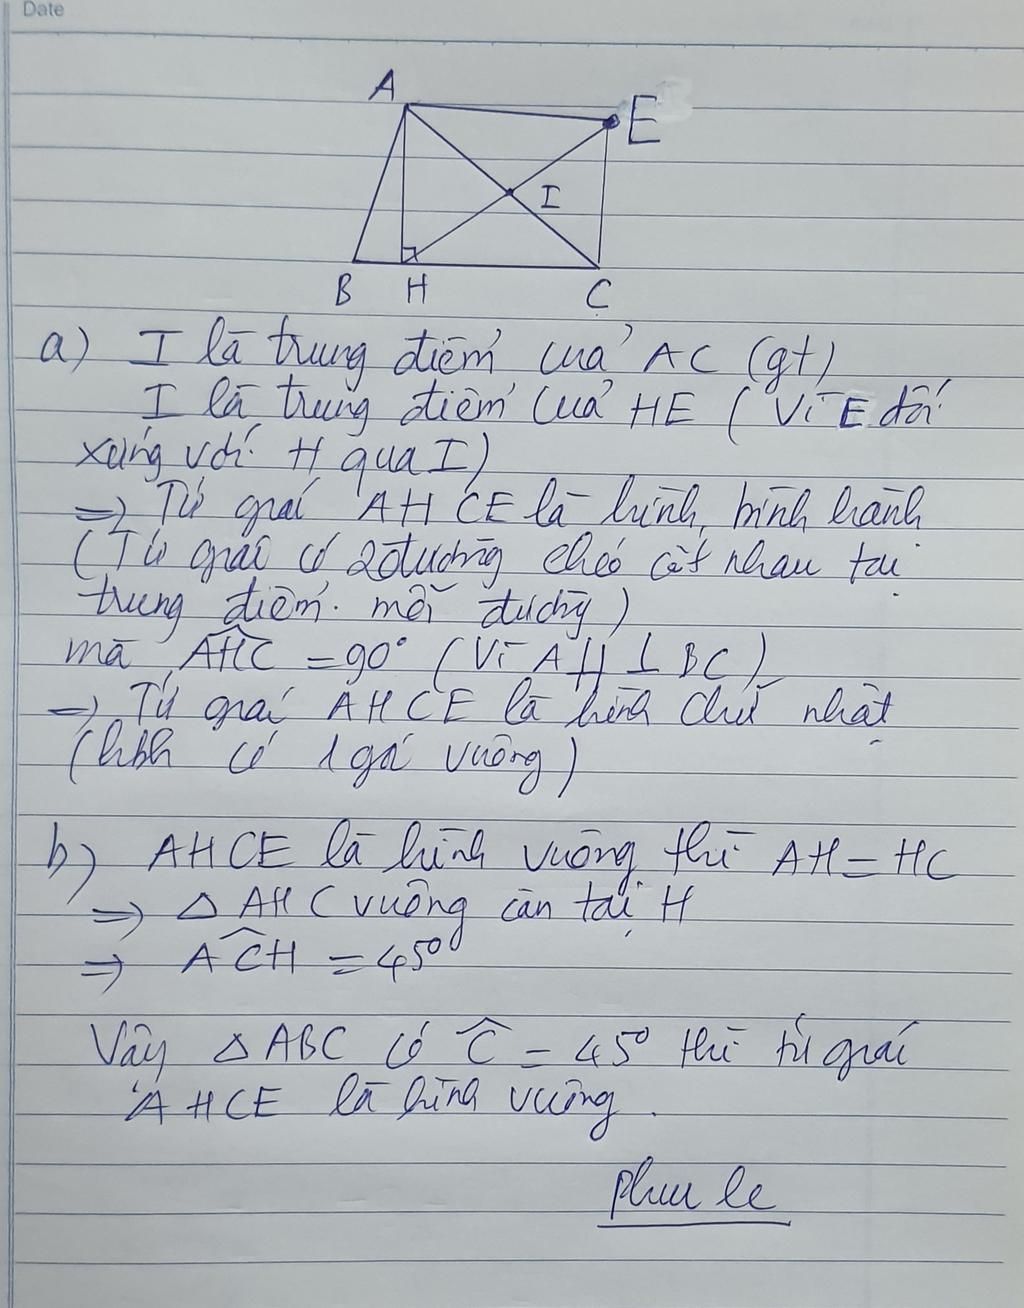 Date
A
E
I
B H C
a) I là trung điểm của AC (gt)
I là trung điểm của HE ( Vì E đối
xứng với H qua I)
=> Tứ giác AHCE là hình bình hành
(Tứ giác có 2 đường chéo cắt nhau tại
trung điểm mỗi đường)
mà AHC = 90° (Vì AH ⊥ BC)
=> Tứ giác AHCE là hình chữ nhật
(hbh có 1 góc vuông)
b) AHCE là hình vuông thì AH = HC
=> △ AHC vuông cân tại H
=> ACH = 45°
Vậy △ ABC có Ĉ = 45° thì tứ giác
AHCE là hình vuông.
Phuu le